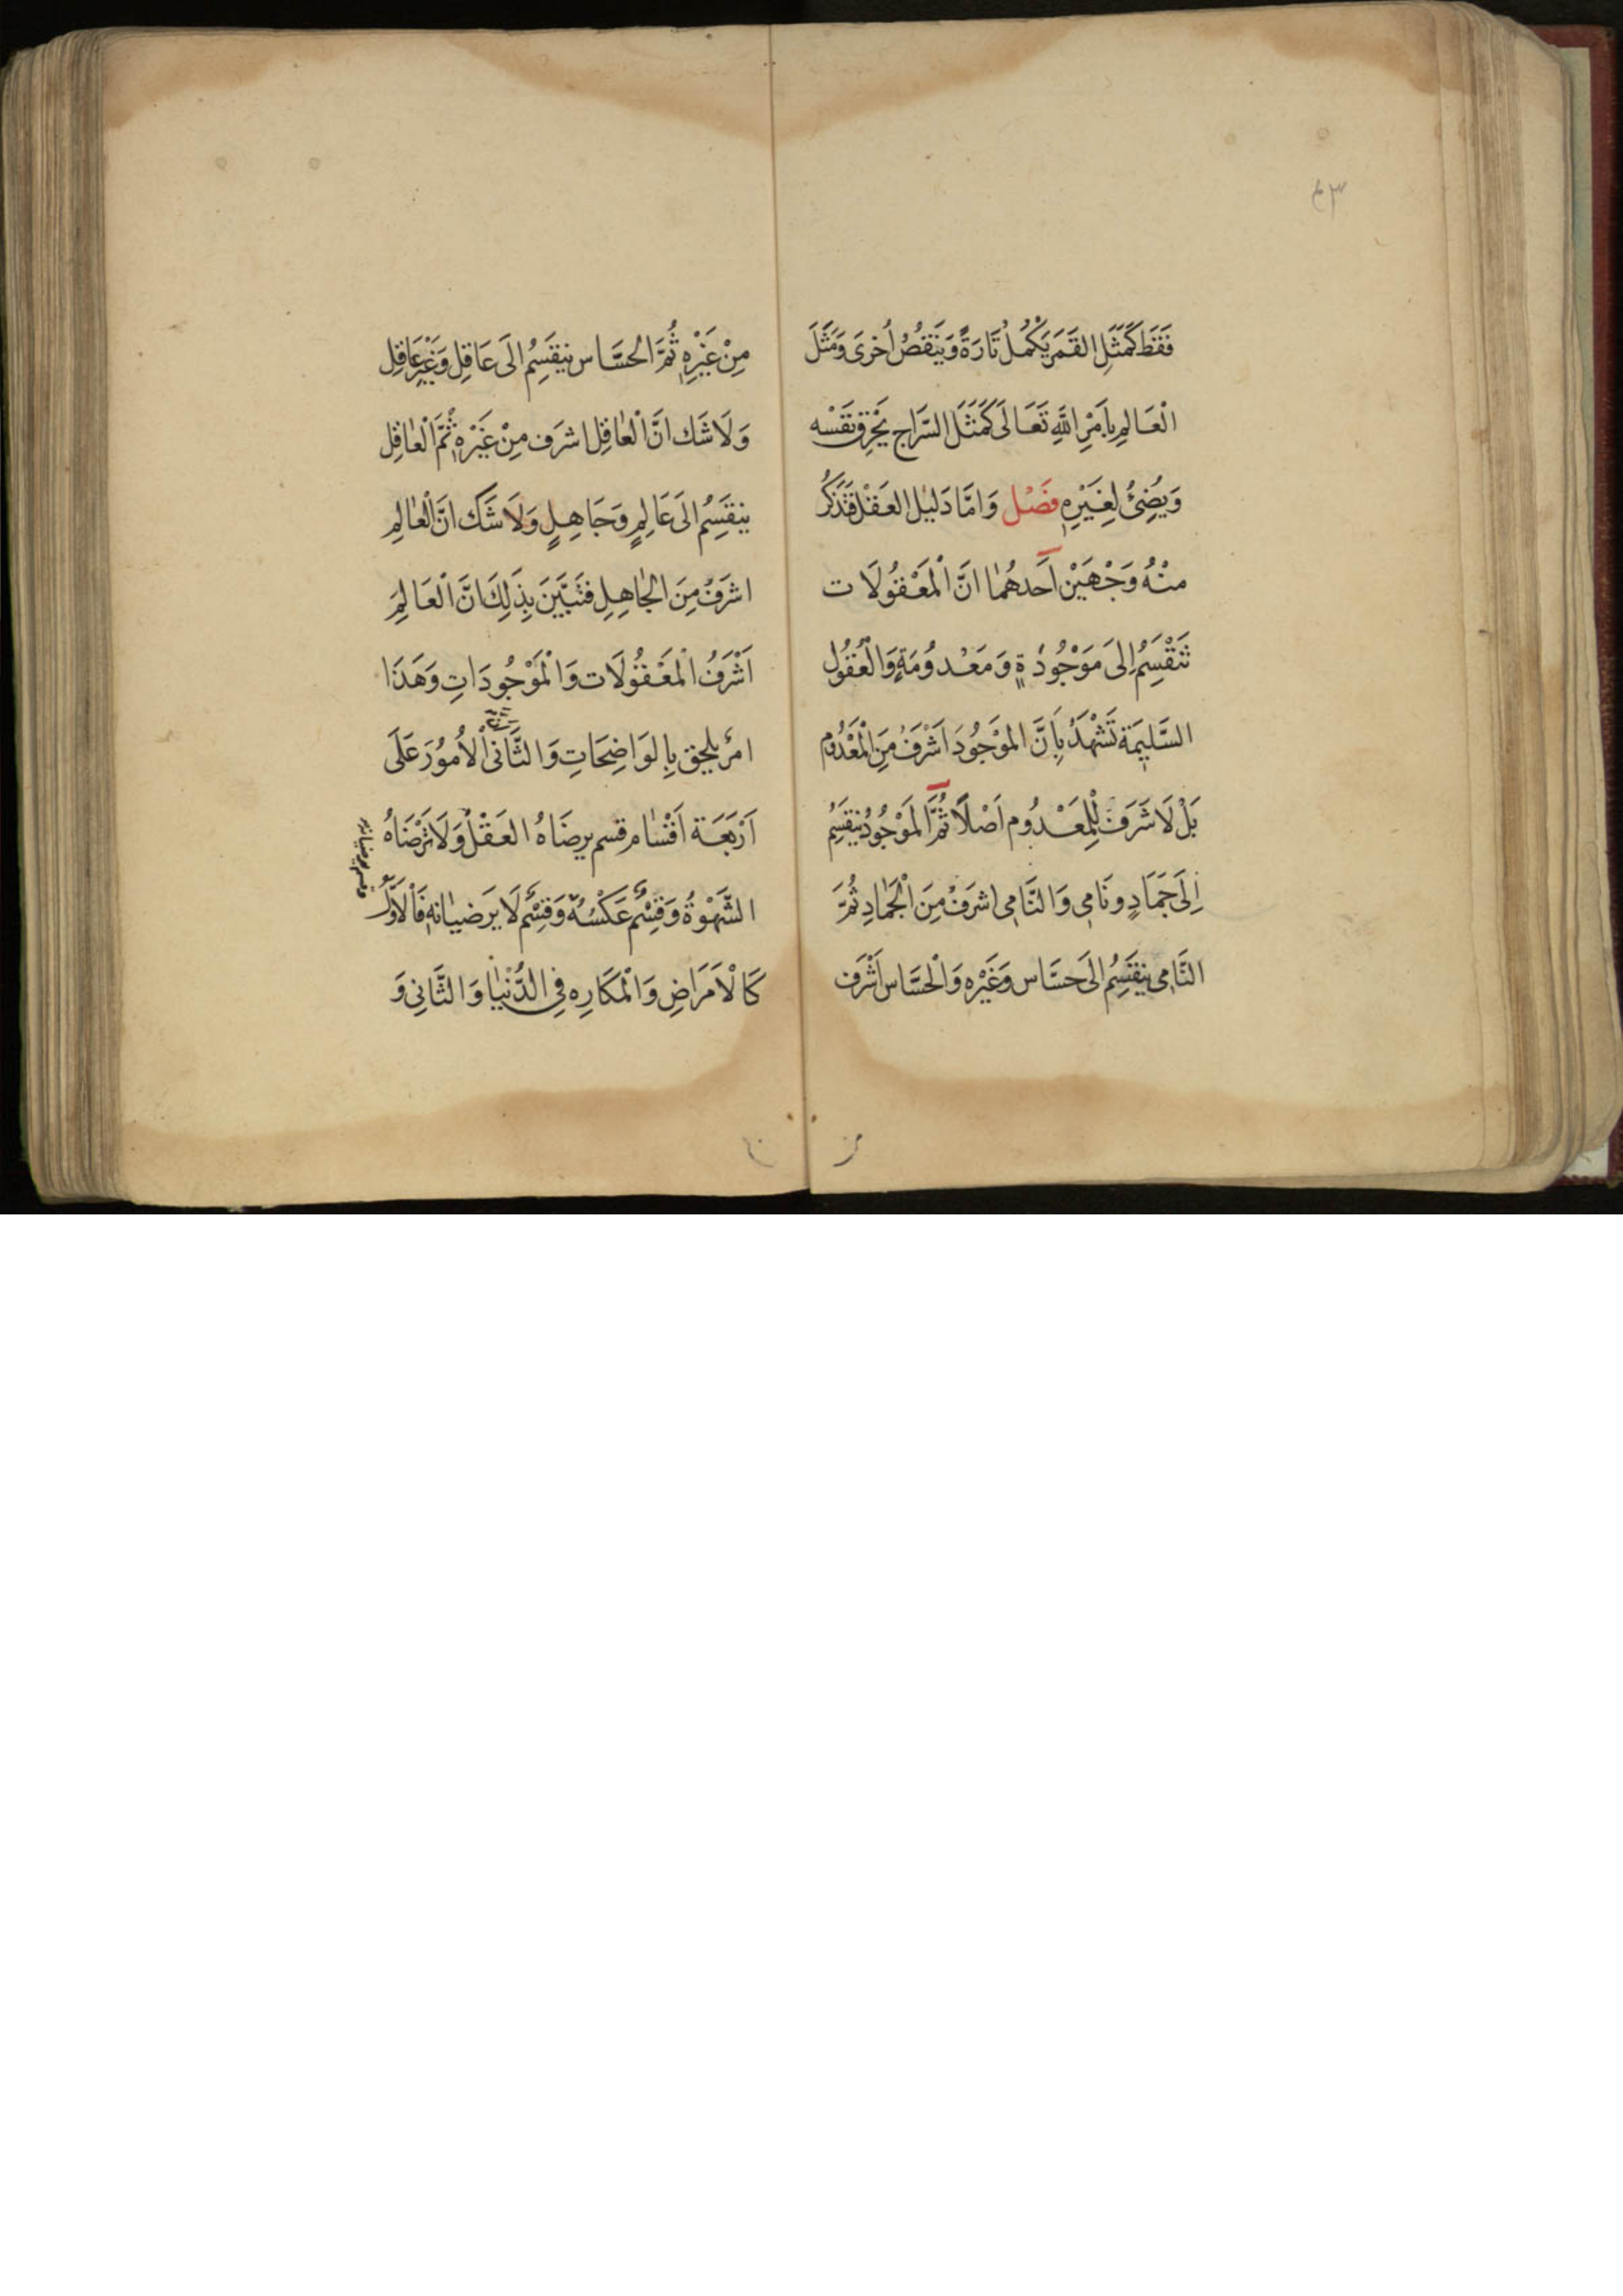 فَقَط كَمَثَلِ القَمَر يَكْمُلُ تَارَةً وَيَنْقصُ اُخرَى وَمَثَلَ
الْعَالِمِ بِاَمْرِ اللّٰهِ تَعَالَى كَمَثَلِ السّرَاج يَحْرِق نَفْسَه
وَيُضِئُ لِغَيْرِهِ فَصْل وَامَّا دَليْل العَقْل فَنَذكُر
منْهُ وَجْهَيْن اَحَدهُمَا انَّ الْمَعْقُولَات
تَنْقَسِمُ اِلىَ مَوْجُودَةٍ وَمَعْدُومَةٍ وَالْعُقُول
السَّلِيمَة تَشْهَدُ بِاَنَّ المَوْجُودَ اَشْرَفُ مِنَ الْمَعْدُوم
بَلْ لَا شَرَفَ لِلْمَعْدُوم اَصْلًا ثُمَّ المَوْجُودُ يَنقَسِمُ
اِلَى جَمَادٍ وَنَامِي وَالنَّامِي اشرَفُ مِنَ الْجَمَادِ ثُمَّ
النَّامِي يَنقَسِمُ الَى حَسَّاس وَغَيْرِه وَالْحَسَّاس اَشْرَف
مِنْ غَيْرِهِ ثُمَّ الحَسَّاس يَنقَسِمُ الَى عَاقِل وَغَيْرِ عَاقِل
وَلَا شَك انَّ الْعَاقِل اشرَف مِنْ غَيْرِهِ ثُمَّ الْعَاقِل
يَنقَسِمُ الَى عَالِمٍ وَجَاهِلٍ وَلَا شَكَ انَّ الْعَالِمِ
اشرَفُ مِنَ الجَاهِلِ فتَبَيَّنَ بِذَلِكَ انَّ الْعَالِمَ
اَشْرَفُ الْمَعْقُولَات وَالْمَوْجُودَاتِ وَهَذَا
امرٌ يلحق بِالوَاضِحَاتِ وَالثَّانى الْاُمُورَ عَلَى
اَرْبَعَة اَقْسَام قسم يرضَاهُ العَقْلُ وَلَا تَرْضَاهُ
الشَّهْوَةُ وَقِسْمٌ عَكْسُهُ وَقِسْمٌ لَا يَرَضيَانِهِ فَالْاَوَّلُ
كَالْاَمَرَاضِ وَالْمَكَارِه فِى الدُّنْيَا وَالثَّانِى وَ